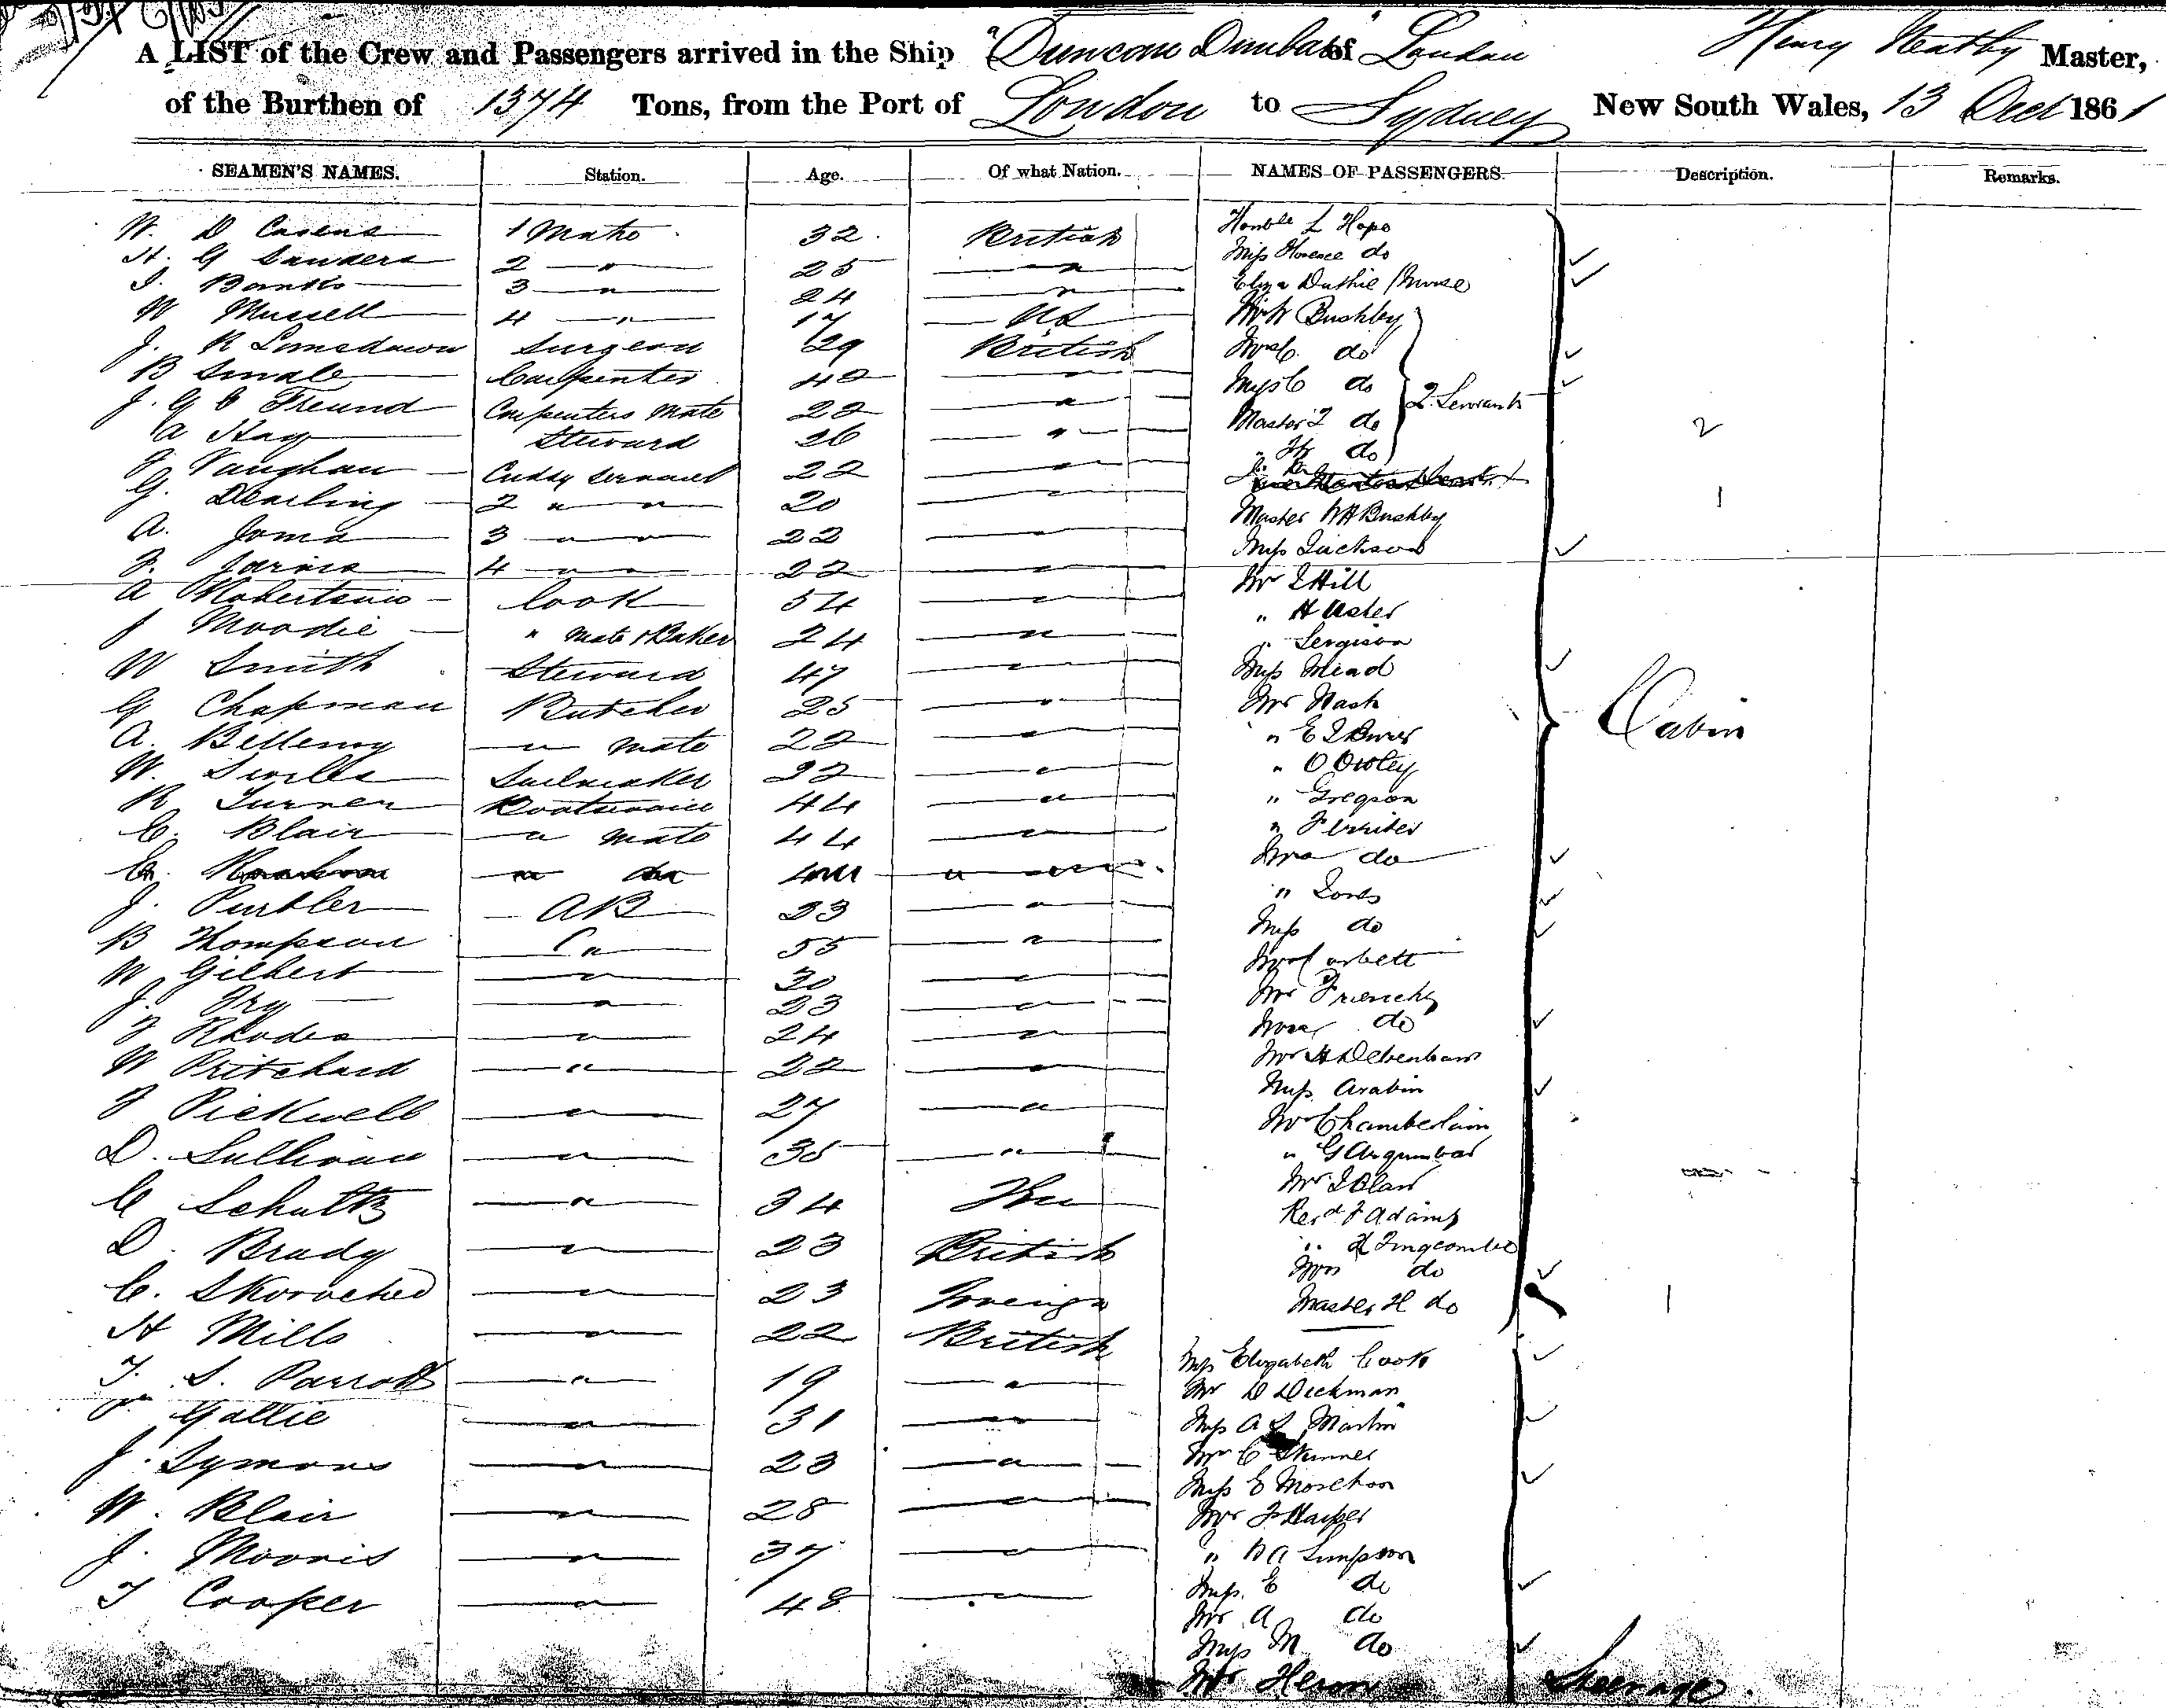 A LIST of the Crew and Passengers arrived in the Ship "Duncan Dunbar" of London Henry Neatby Master,
of the Burthen of 1374 Tons, from the Port of London to Sydney New South Wales, 13 Decr 1861
SEAMEN'S NAMES. Station. Age. Of what Nation. NAMES OF PASSENGERS. Description. Remarks.
W. D 1 Mate 32 British Honble L Hope
H. G Sanders 2 " 25 " Miss Florence do
Banks 3 " 24 " Eliza Duthie / Nurse
W Mussell 4 " 17 US Bushby
J. R Lonsdown Surgeon 29 British Mrs do
B Smale Carpenter 42 " Miss C do 2 Servants
J. G C Freund Carpenters Mate 22 " Master do
A Hay Steward 26 " " do 2
Vaughan Cuddy Servant 22 "
G. Dearling 2 " " 20 " Master W H Bushby 1
A. 3 " " 22 " Miss Jackson
F. Jarvis 4 " " 22 " Mr J Hill
A Robertson Cook 54 " " H Usher
J Moodie " mate & Baker 24 " " Sergison
W Smith Steward 47 " Miss Mead
G Chapman Butcher 25 " Mr Nash
A. Bellemy " mate 22 " " E
W. Sailmaker 22 " " O Owley
R Turner Boatswain 44 " " Gregson
C. Blair " mate 44 " " Ferriter
Mrs do
J. Purtler AB 23 " "
B Thompson " 55 " Miss do
W Gilbert " 30 " Corbett
J. Fry " 23 " Mr French
F Rhodes " 24 " Mrs do
W Pritchard " 22 " Mr H Debenham
F Pickwell " 27 " Miss Arabin
D. Sullivan " 35 " Mr Chamberlain
" G
C Schultz " 34 Mr J Blair
Revd F Adams
D. Brady " 23 British " H Tingcombe
Mrs do
C. " 23 Foreign Master H do 1
Cabin
H Mills " 22 British Miss Elizabeth Cook
T. S. Parrott " 19 " Mr D Dickman
Gallie " 31 " Miss A L Martin
J. Symons " 23 " Mr C Skinner
Miss E
W. Blair " 28 " Mr J Harper
J. Morris " 37 " " Simpson
T Cooper " 48 " Miss E do
Mr A do
Miss M do
Mr Heron Steerage.